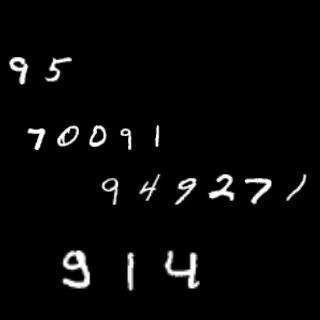 95
70091
949271
914